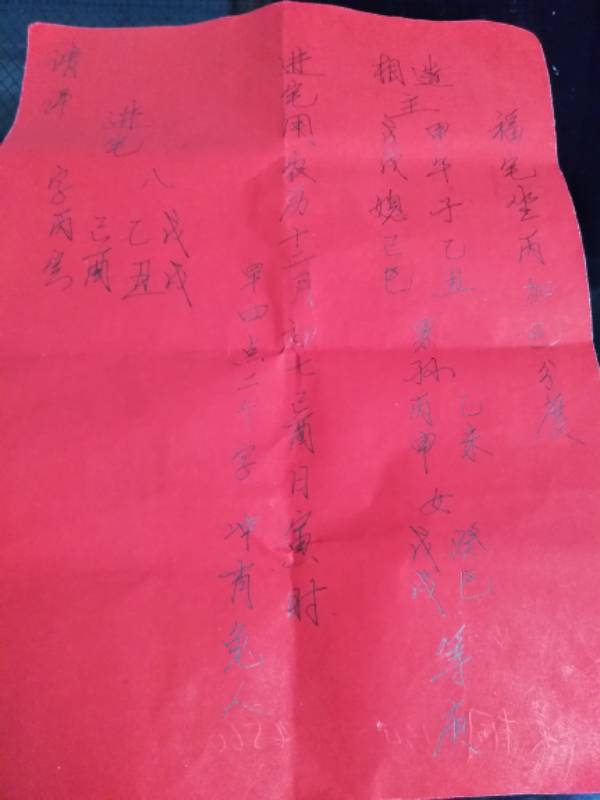 福宅坐丙加巳分度
造主甲午子乙丑乙未癸巳
相主戊戌媳己巳男孙丙申女戊戌等庆
进宅用农历十二月初七己酉日寅时
早四点二十字冲肖兔人
进宅八
戊戌
乙丑
己酉
字丙寅